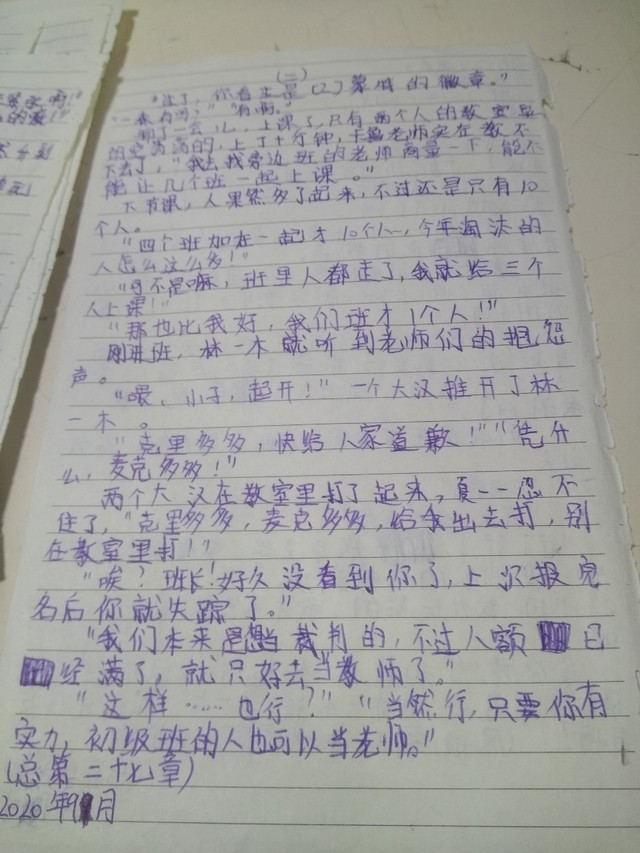 (二)
"对了,你看这是(2)蒙特的徽章。"
"我有吗?""有啊。"
聊了一会儿,上课了,只有两个人的教室显
的空荡荡的,上了十分钟,卡曼老师实在教不
下去了,"我去找旁边班的老师商量一下,能不
能让几个班一起上课。"
下节课,人果然多了起来,不过还是只有10
个人。
"四个班加在一起才10个人,今年淘汰的
人怎么这么多!"
"可不是嘛,班里人都走了,我就给三个
人上课!"
"那也比我好,我们班才1个人!"
刚进班,林一木就听到老师们的抱怨
声。
"喂,小子,起开!"一个大汉推开了林
一木。
"克里多多,快给人家道歉!""凭什
么,麦克多多!"
两个大汉在教室里打了起来,夏一一忍不
住了,"克里多多,麦克多多,给我出去打,别
在教室里打!"
"唉?班长!好久没看到你了,上次报完
名后你就失踪了。"
"我们本来是想当裁判的,不过人额已
经满了,就只好去当教师了。"
"这样……也行?""当然行,只要你有
实力,初级班的人也可以当老师。"
(总第二十七章)
2020年9月